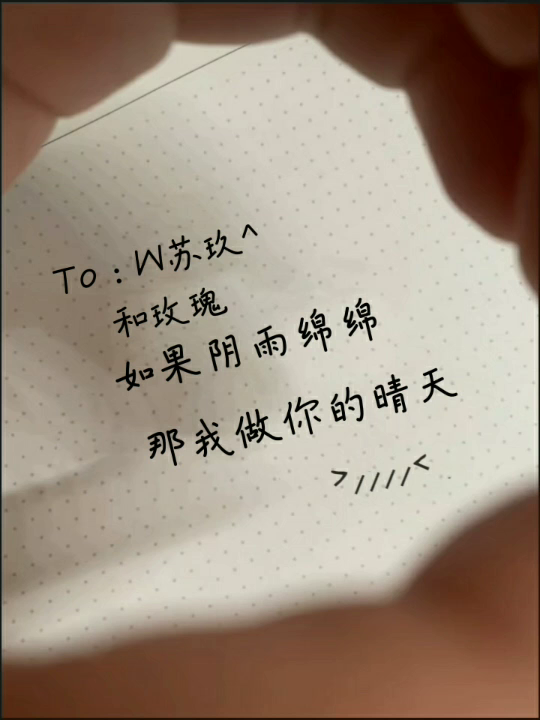 To：W苏玖^
和玫瑰
如果阴雨绵绵
那我做你的晴天
>////<